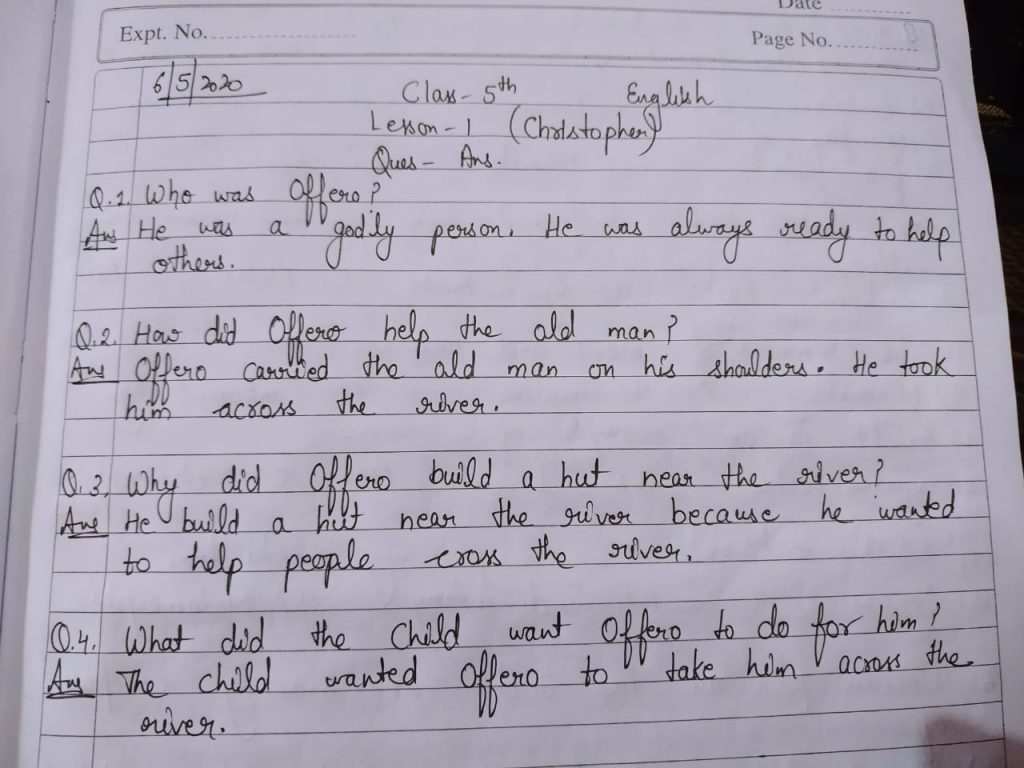 Date ..............
Expt. No. ..............................
Page No. ..............
6/5/2020
Class - 5th English
Lesson - 1 (Christopher)
Ques - Ans.
Q.1. Who was Offero?
Ans He was a godily person. He was always ready to help
others.
Q.2. How did Offero help the old man?
Ans Offero carried the old man on his shoulders. He took
him across the river.
Q.3. Why did Offero build a hut near the river?
Ans He build a hut near the river because he wanted
to help people cross the river.
Q.4. What did the Child want Offero to do for him?
Ans The child wanted Offero to take him across the
river.